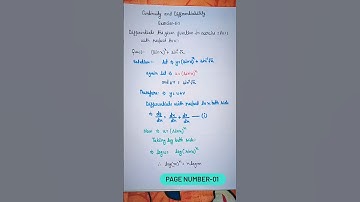 Continuity and Differentiability
Exercise-5.5
Differentiate the given function in exercise 1 to 11
with respect to x:
Ques:- (sin x)ˣ + sin⁻¹ √x
Solution:- Let y = (sin x)ˣ + sin⁻¹ √x
again let u = (sin x)ˣ
and v = sin⁻¹ √x
Therefore y = u + v
Differentiate with respect to x both side
dy/dx = du/dx + dv/dx — (i)
Now u = (sin x)ˣ
Taking log both side:
log u = log (sin x)ˣ
∴ log(m)ⁿ = n log m
PAGE NUMBER-01